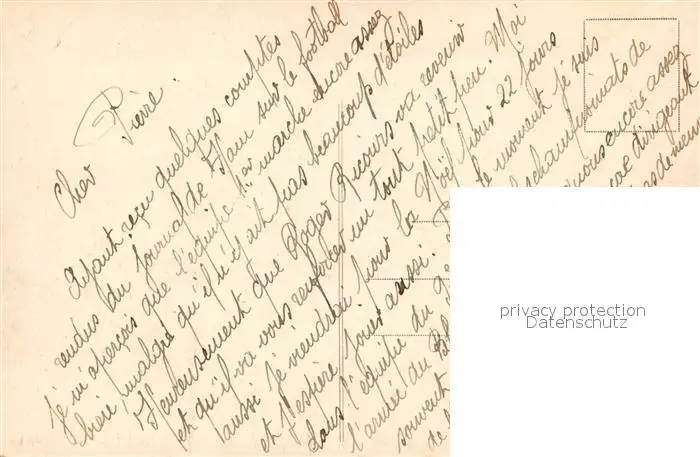 Cher Pierre.
Ayant reçu quelques comptes
rendus du journal de Ham sur le football
je m'aperçois que l'équipe 1er marche encore assez
bien, malgré qu'il n'y ait pas beaucoup d'étoiles
Heureusement que Roger Ricours va revenir
et qu'il va vous renforcer un tout petit peu. Moi
aussi je viendrai pour la Noël pour 22 jours
et j'espère jouer aussi. de moment je suis
dans l'équipe du championnats de
l'armée du encore assez
souvent dirigeant
de
privacy protection
Datenschutz